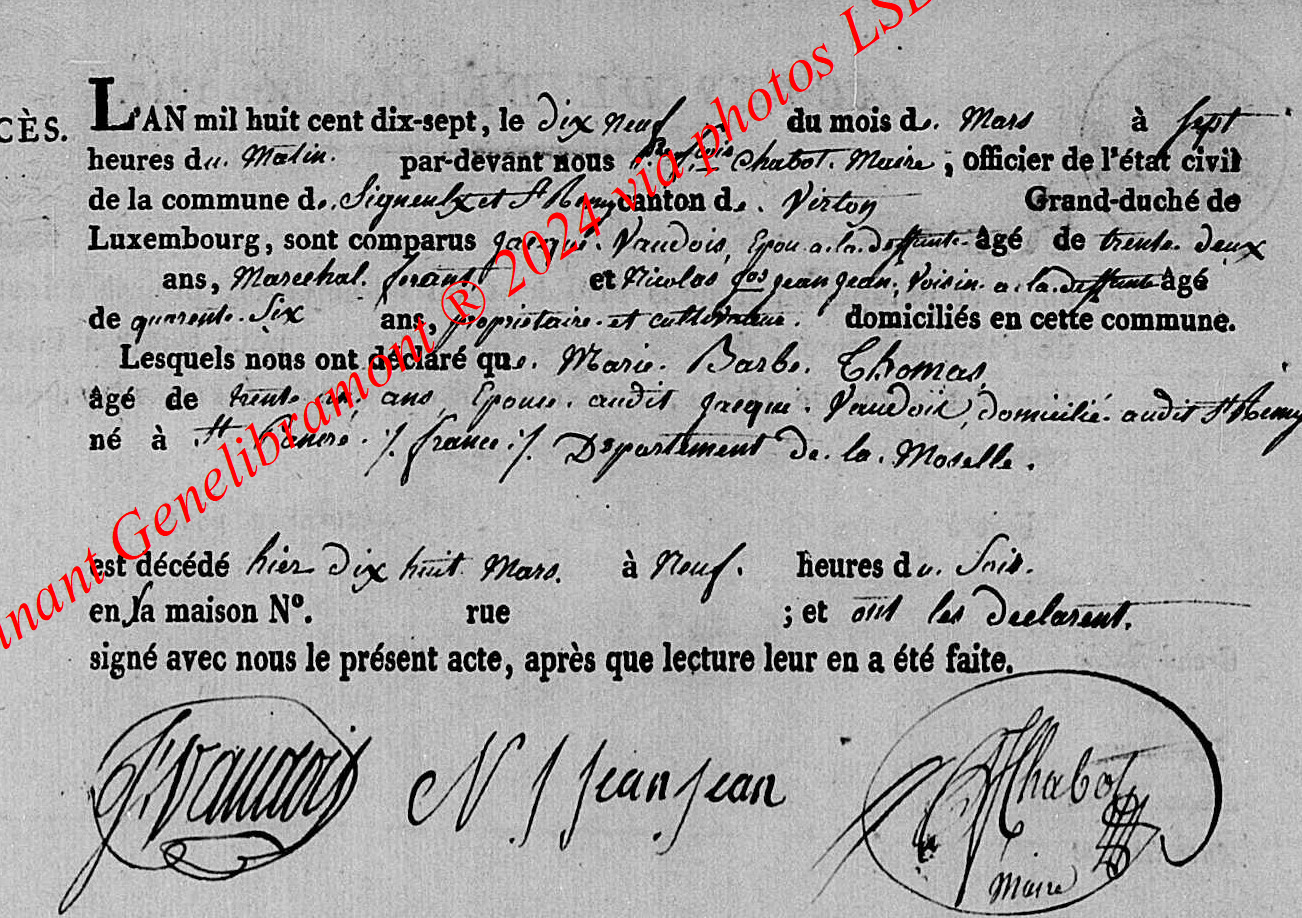 CÈS. L'AN mil huit cent dix-sept, le dix neuf du mois de Mars à sept
heures du Matin. par-devant nous Chabot. Maire, officier de l'état civil
de la commune de. Signeulx et St Remy canton de. Virton Grand-duché de
Luxembourg, sont comparus jacque. Vaudois, Epou a. la. deffunte. âgé de trente. deux
ans, Marechal. ferant. et Nicolas fçois jean jean, Voisin. a. la. deffunte âgé
de quarente. Six ans, propriétaire. et cultivateur. domiciliés en cette commune.
Lesquels nous ont déclaré que. Marie. Barbe. Thomas,
âgé de trente ans, Epouse. audit jacque. Vaudois, domicilié. audit St Remy
né à . St Pancré. ./. france ./. Département de. la. Moselle.
est décédé hier dix huit Mars. à Neuf. heures du. Soir.
en sa maison N°. rue ; et ont les declarent.
signé avec nous le présent acte, après que lecture leur en a été faite.
J. Vaudois N f jean jean Chabot
Maire
nant Genelibramont ® 2024 via photos LSD